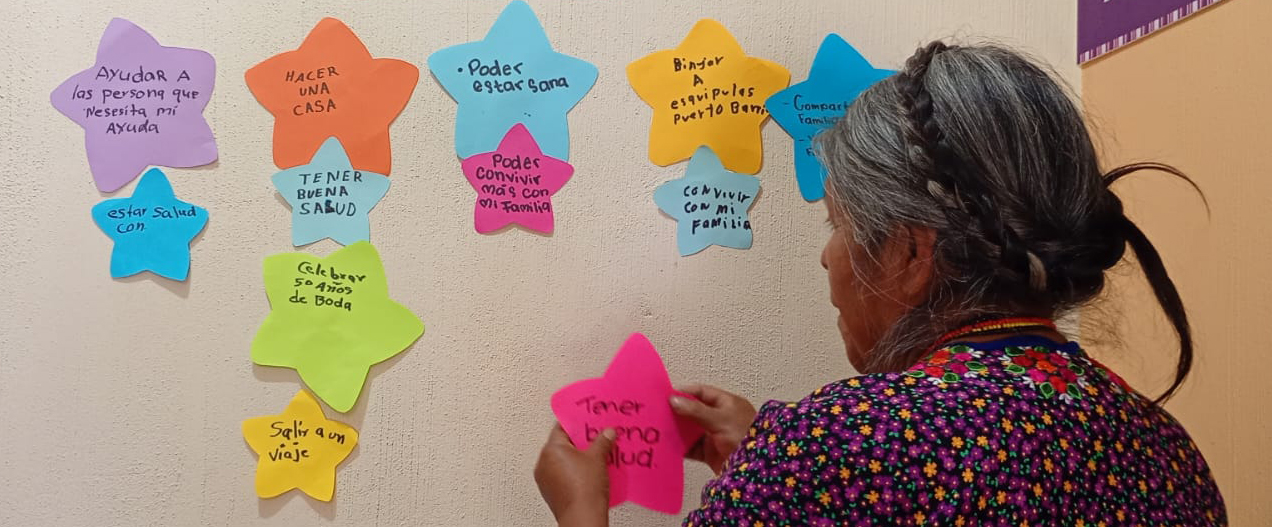 AYUDAR A
las persona que
Nesesita mi
AYUDA
estar Salud
con
HACER
UNA
CASA
TENER
BUENA
SALUD
Celebrar
50 Años
de Boda
Salir a un
viaje
• Poder
estar Sana
Poder
Convivir
más con
mi Familia
A
esquipulas
puerto
CONVIVIR
CON mi
FAMILIA
Tener
buena